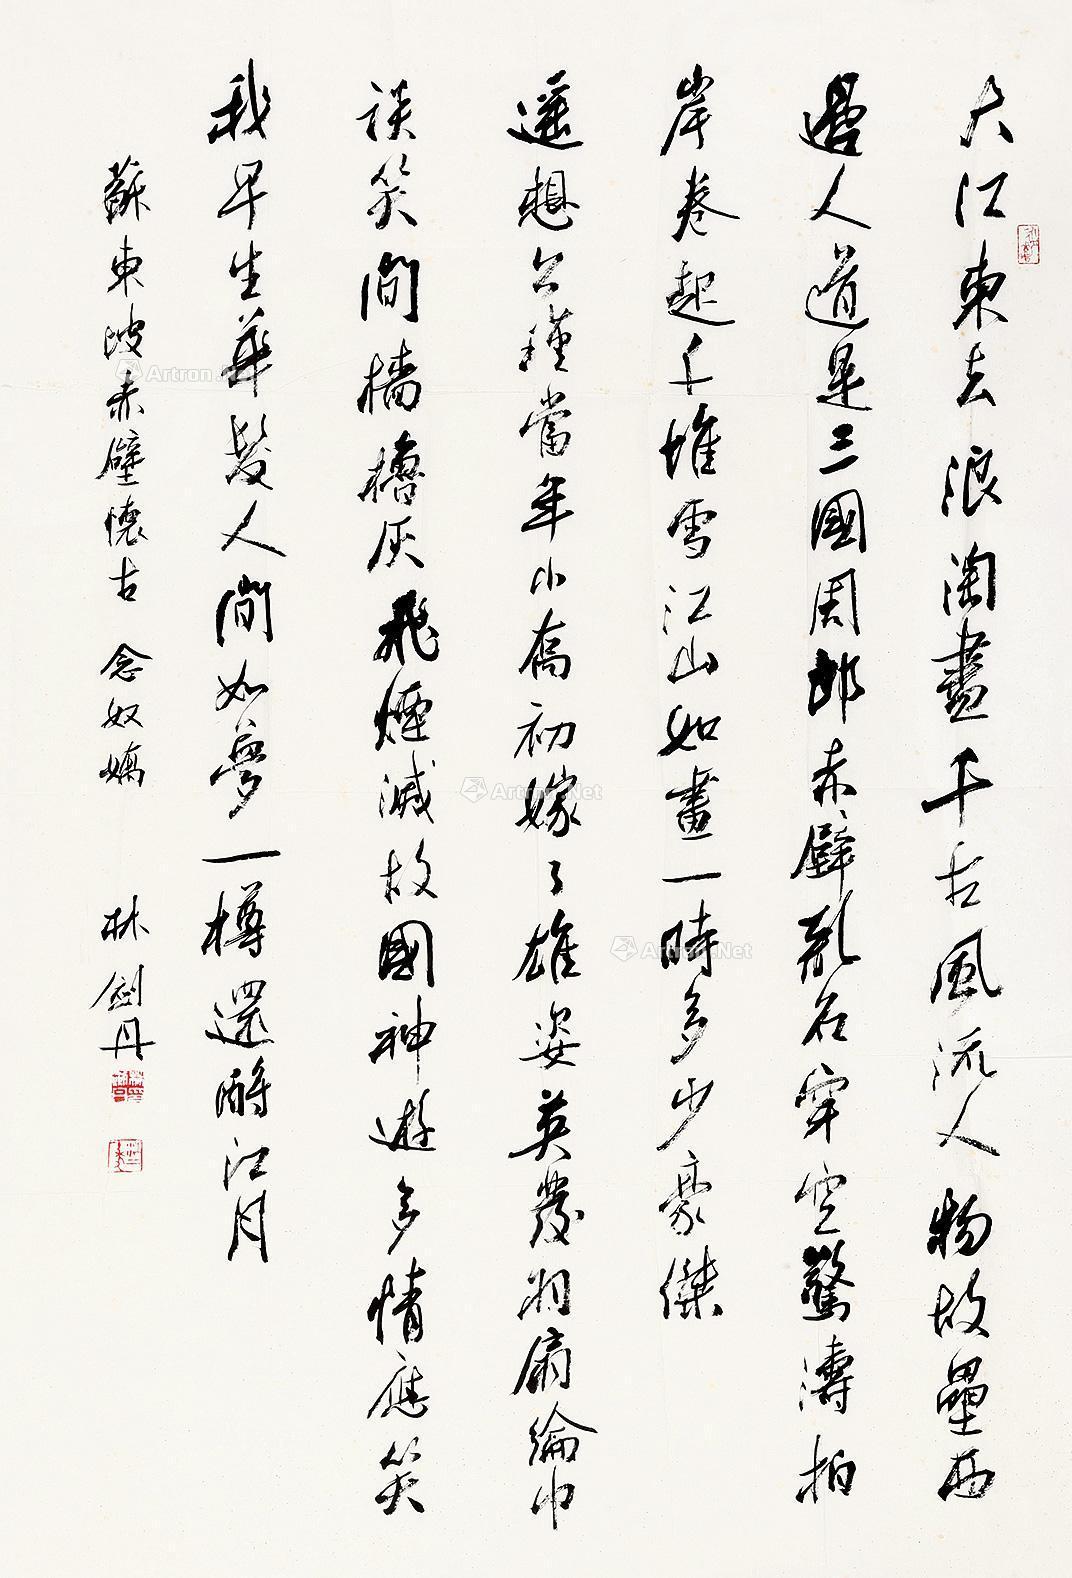 大江東去浪淘盡千古風流人物故壘西
邊人道是三國周郎赤壁亂石穿空驚濤拍
岸卷起千堆雪江山如畫一時多少豪傑
遥想公瑾當年小喬初嫁了雄姿英發羽扇綸巾
談笑間檣櫓灰飛煙滅故國神遊多情應笑
我早生華髮人間如夢一樽還酹江月
蘇東坡赤壁懷古 念奴嬌 林劍丹
Artron.Net
Artron.Net
Artron.Net